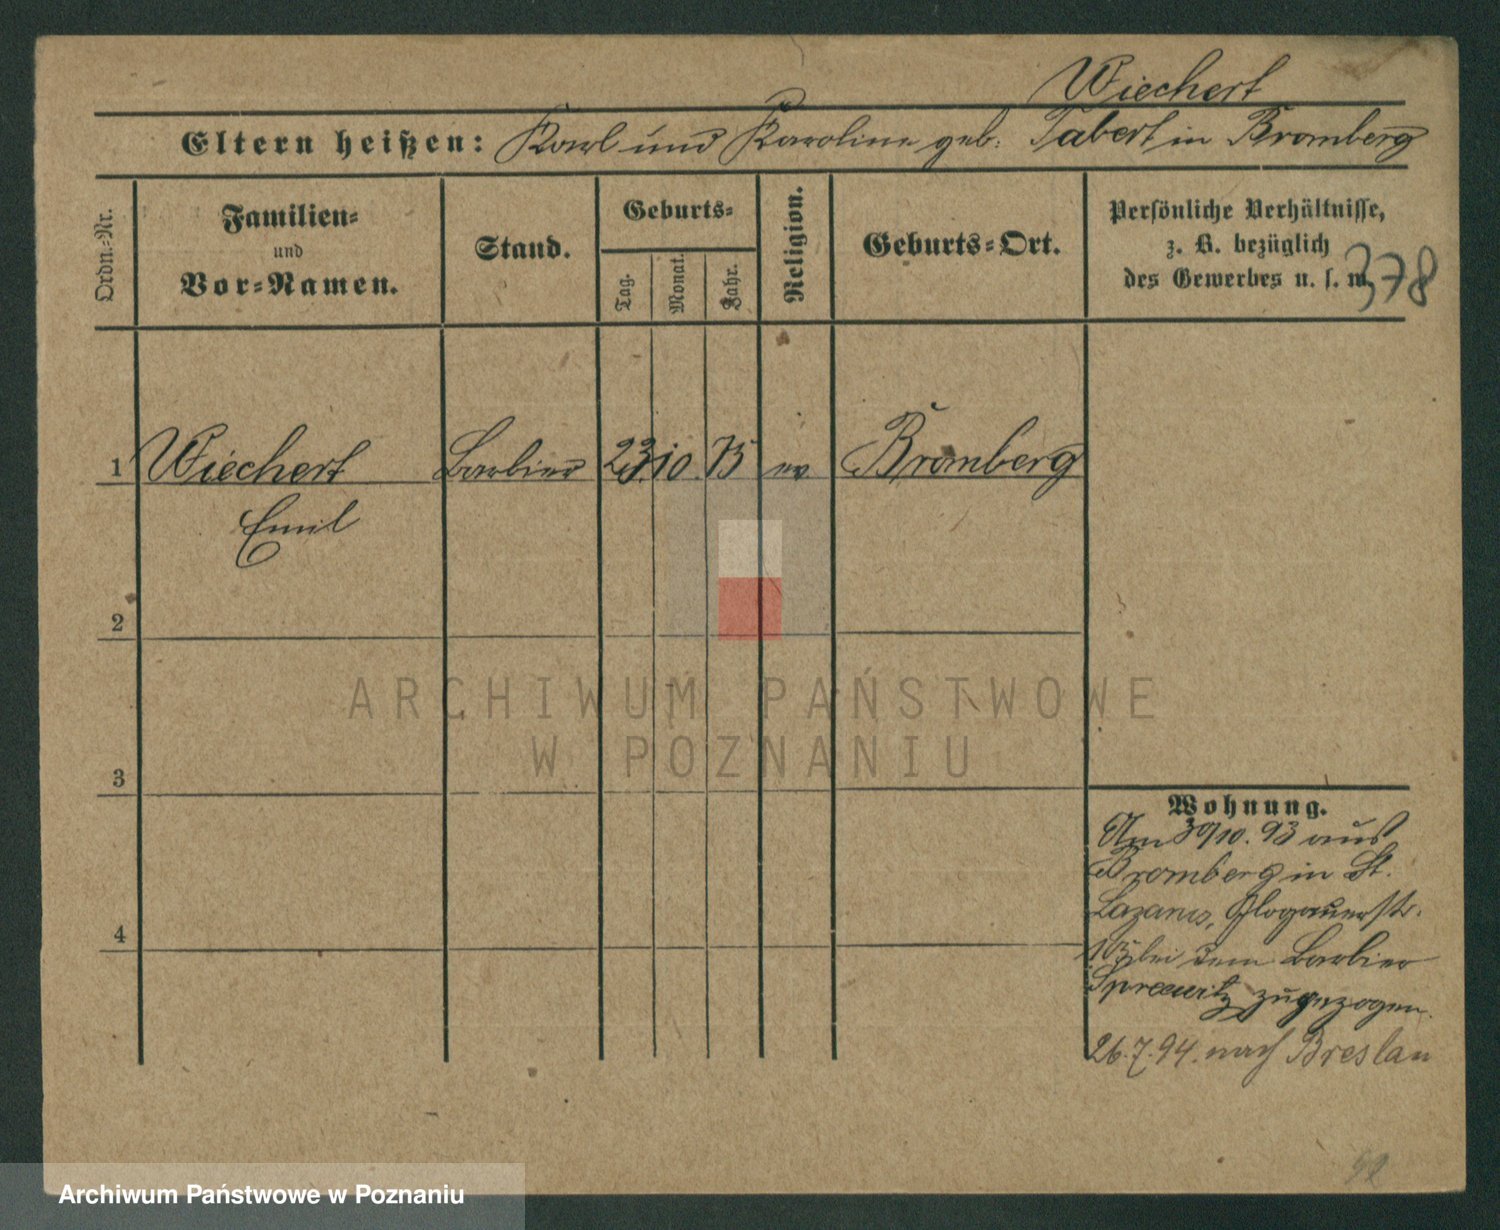 Wiechert
Eltern heißen: Karl und Karoline geb. Tabert in Bromberg
Ordn.-Nr.
Familien-
und
Vor-Namen.
Stand.
Geburts-
Tag.
Monat.
Jahr.
Religion.
Geburts-Ort.
Persönliche Verhältnisse,
z. B. bezüglich
des Gewerbes u. s. w.
378
1 Wiechert Barbier 23. 10. 75 ev. Bromberg
Emil
2
3
4
Wohnung.
Am 30/10. 93 aus
Bromberg in St.
Lazarus, Glogauerstr.
105 bei dem Barbier
zugezogen.
26.7.94. nach Breslau
ARCHIWUM PAŃSTWOWE
W POZNANIU
Archiwum Państwowe w Poznaniu